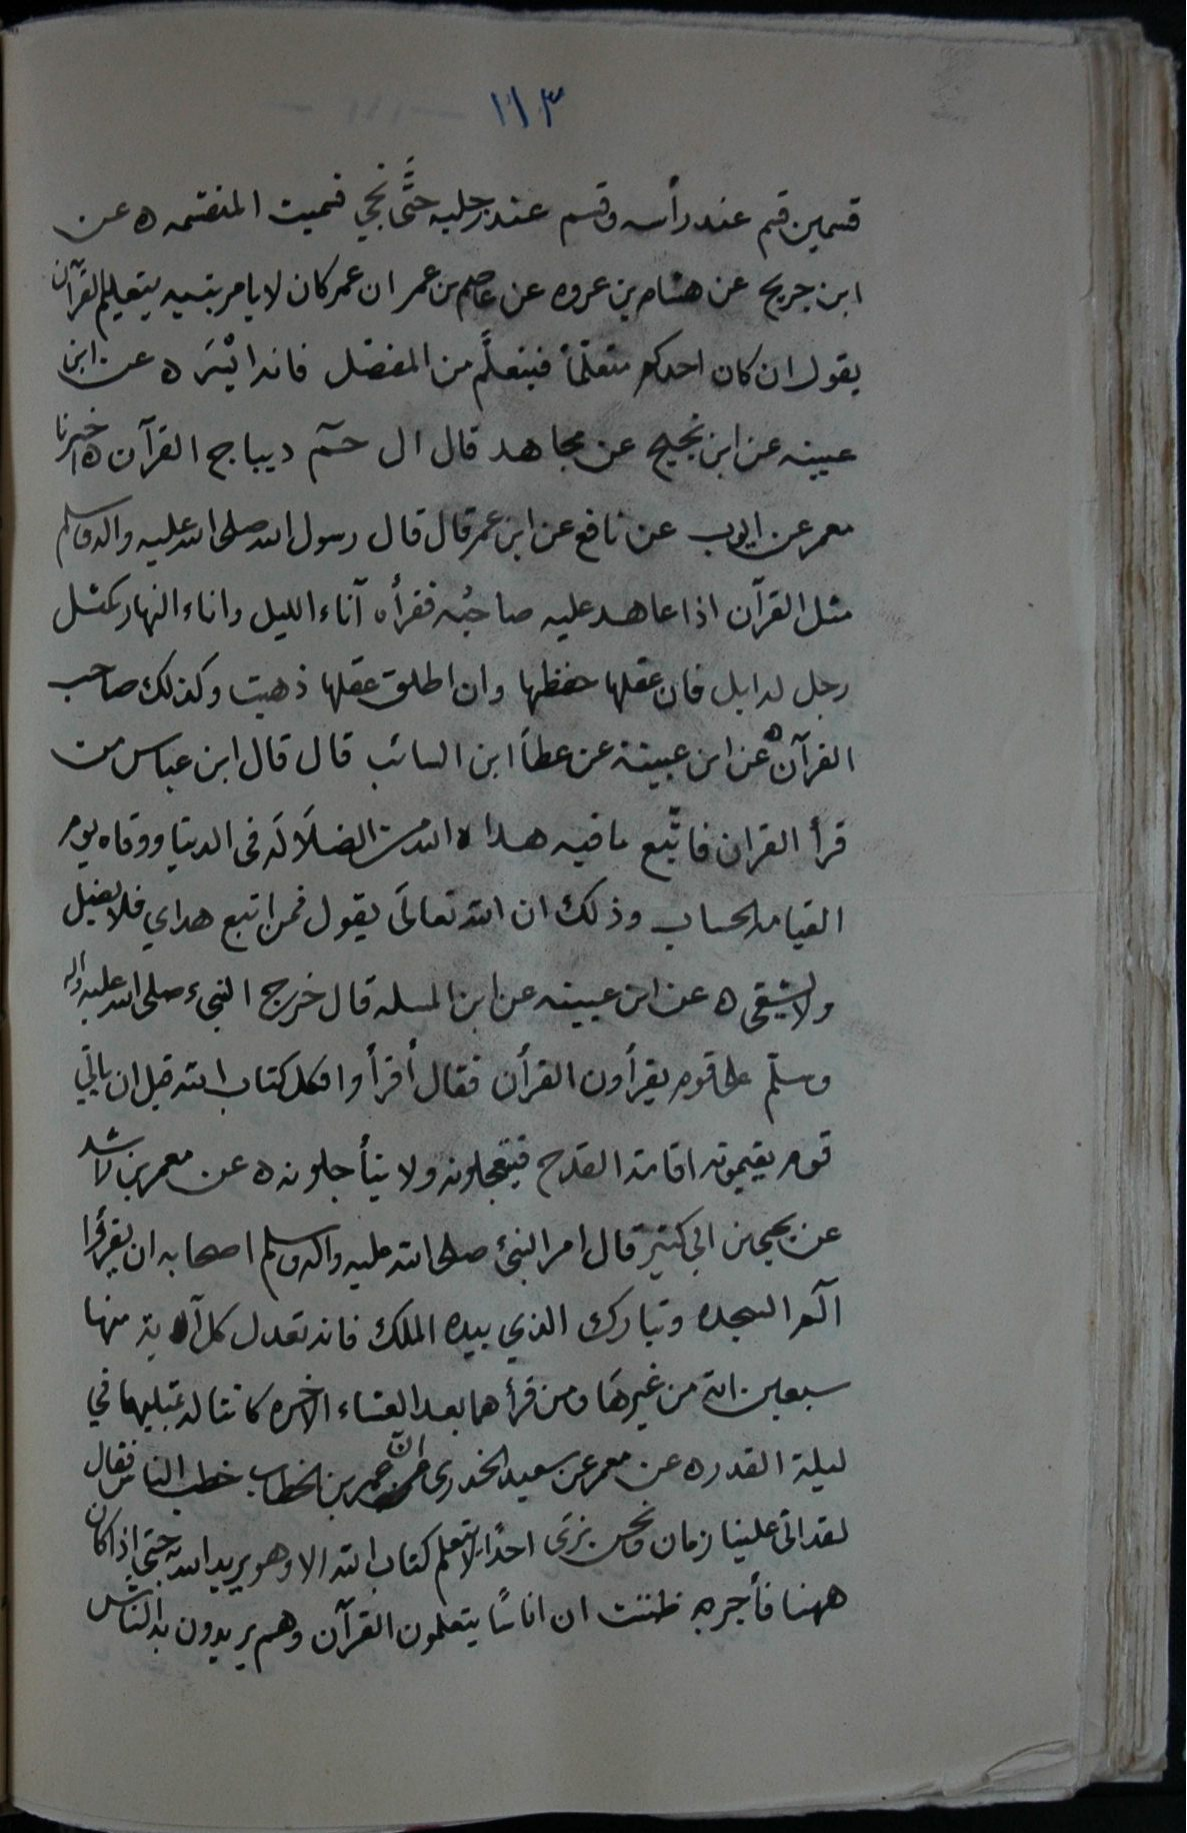 ١١٣
قسمين قسم عند رأسه وقسم عند رجليه حتَّى نجي فسميت المنقسمه ه عن
ابن جريج عن هشام بن عروه عن عاصم بن عمر ان عمر كان لا يامر بنيه بتعليم القرآن
يقول ان كان احدكم متعلّمًا فيتعلَّم من المفصّل فانه ايْسَر ه عن ابن
عيينه عن ابن نجيح عن مجاهد قال ال حمٓ ديباج القرآن ه اخبرنا
معمر عن ايوب عن نافع عن ابن عمر قال قال رسول الله صلى الله عليه واله وسلم
مثل القرآن اذا عاهد عليه صاحبُه فقرأه آناء الليل واناء النهار كمثل
رجل له ابل فان عقلها حفظها وان اطلق عقلها ذهبت وكذلك صاحب
القرآن ه عن ابن عيينة عن عطأ ابن السائب قال قال ابن عباس من
قرأ القران فاتّبع ما فيه هداه الله من الضلَالَه فى الدنيا ووقاه يوم
القيامه الحساب وذلك ان الله تعالَى يقول فمن اتبع هداي فلا يضل
ولا يشقى ه عن ابن عيينه عن ابن المسله قال خرج النبيء صلى الله عليه واله
وسلّم على قوم يقرأون القرأن فقال أقرأوا فكل كتاب الله قبل ان ياتي
قوم يقيمونه اقامة القدح فيتعجلونه ولا يتأجلونه ه عن معمر بن راشد
عن يحيى بن ابي كثير قال امر النبيّ صلى الله عليه واله وسلم اصحابه ان يقرؤا
آلم السجده وتبارك الذي بيده الملك فانه تعدل كل آية منها
سبعين اية من غيرهَا ومن قرأهما بعد العشاء الاخره كانتا له بمثليهما في
ليلة القدر ه عن معمر عن سعيد الخدرى انّ عمر بن الخطاب خطب الناس فقال
لقد اتى علينا زمان ونحن نرَى احدًا لا يتعلم كتاب الله الا وهو يريد الله حتى اذا كان
ههنا فأجره ظننت ان اناسًا يتعلمون القرآن وهم يريدون به الناس